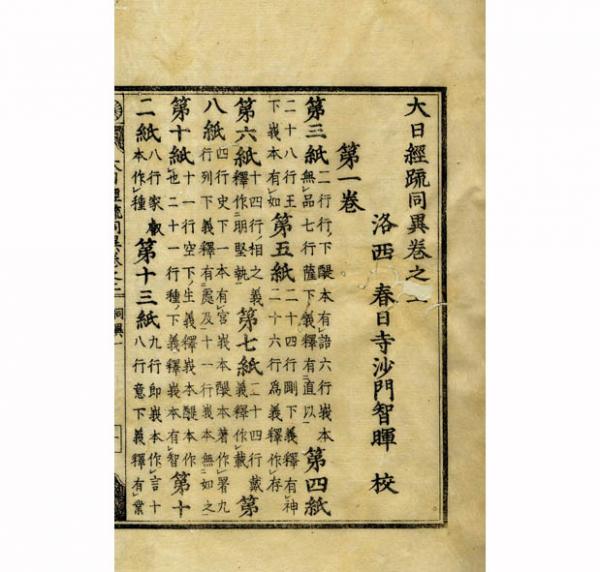 大日經疏同異卷之一
洛西 春日寺沙門智暉 校
第一卷
第三紙 二行行下醍本有語六行嶻本無品七行薩下義釋有直以 第四紙
二十八行王下嶻本有如 第五紙 二十四行剛下義釋有神二十六行為義釋作存
第六紙 十四行相之義釋作明堅執 第七紙 二十四行藏義釋作 第
八紙 四行史下一本有宮嶻本醍本著作署九行列下義釋有處及十一行嶻本無如之
第十紙 十一行空下生義釋嶻本醍本作也二十一行種下義釋嶻本有智 第十
二紙 八行家本作種 第十三紙 九行即嶻本作言十八行意下義釋有業